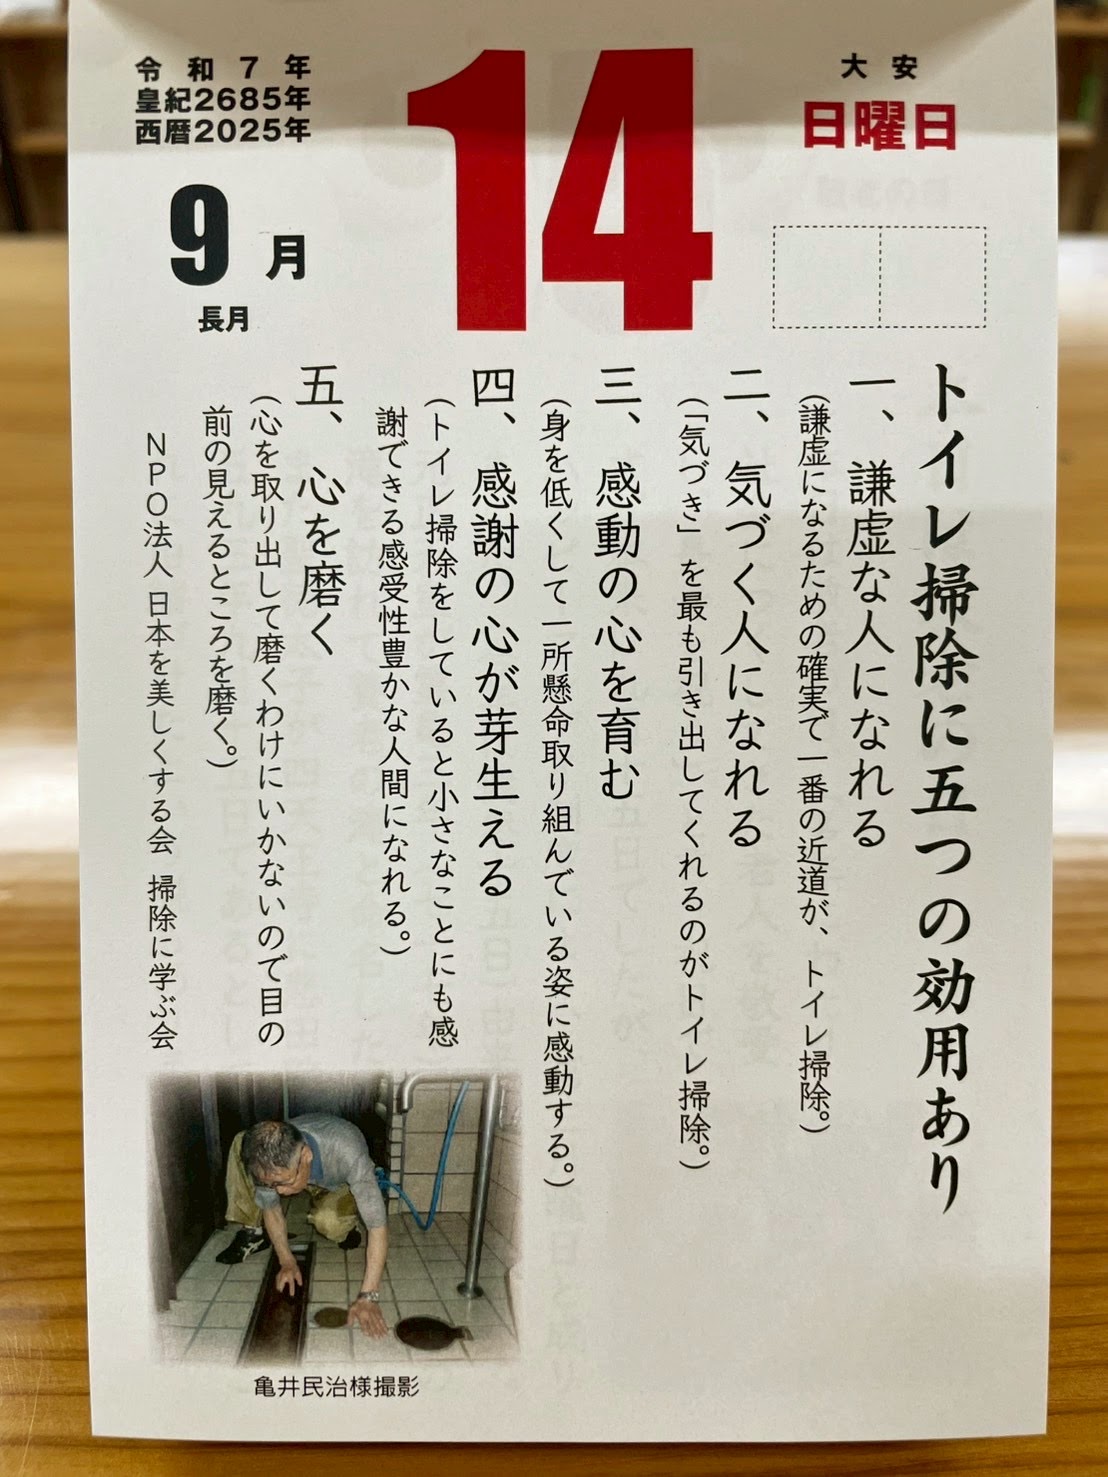 令和7年
皇紀2685年
西暦2025年
9月
長月
14
大安
日曜日
トイレ掃除に五つの効用あり
一、謙虚な人になれる
(謙虚になるための確実で一番の近道が、トイレ掃除。)
二、気づく人になれる
(「気づき」を最も引き出してくれるのがトイレ掃除。)
三、感動の心を育む
(身を低くして一所懸命取り組んでいる姿に感動する。)
四、感謝の心が芽生える
(トイレ掃除をしていると小さなことにも感
謝できる感受性豊かな人間になれる。)
五、心を磨く
(心を取り出して磨くわけにいかないので目の
前の見えるところを磨く。)
NPO法人 日本を美しくする会 掃除に学ぶ会
亀井民治様撮影